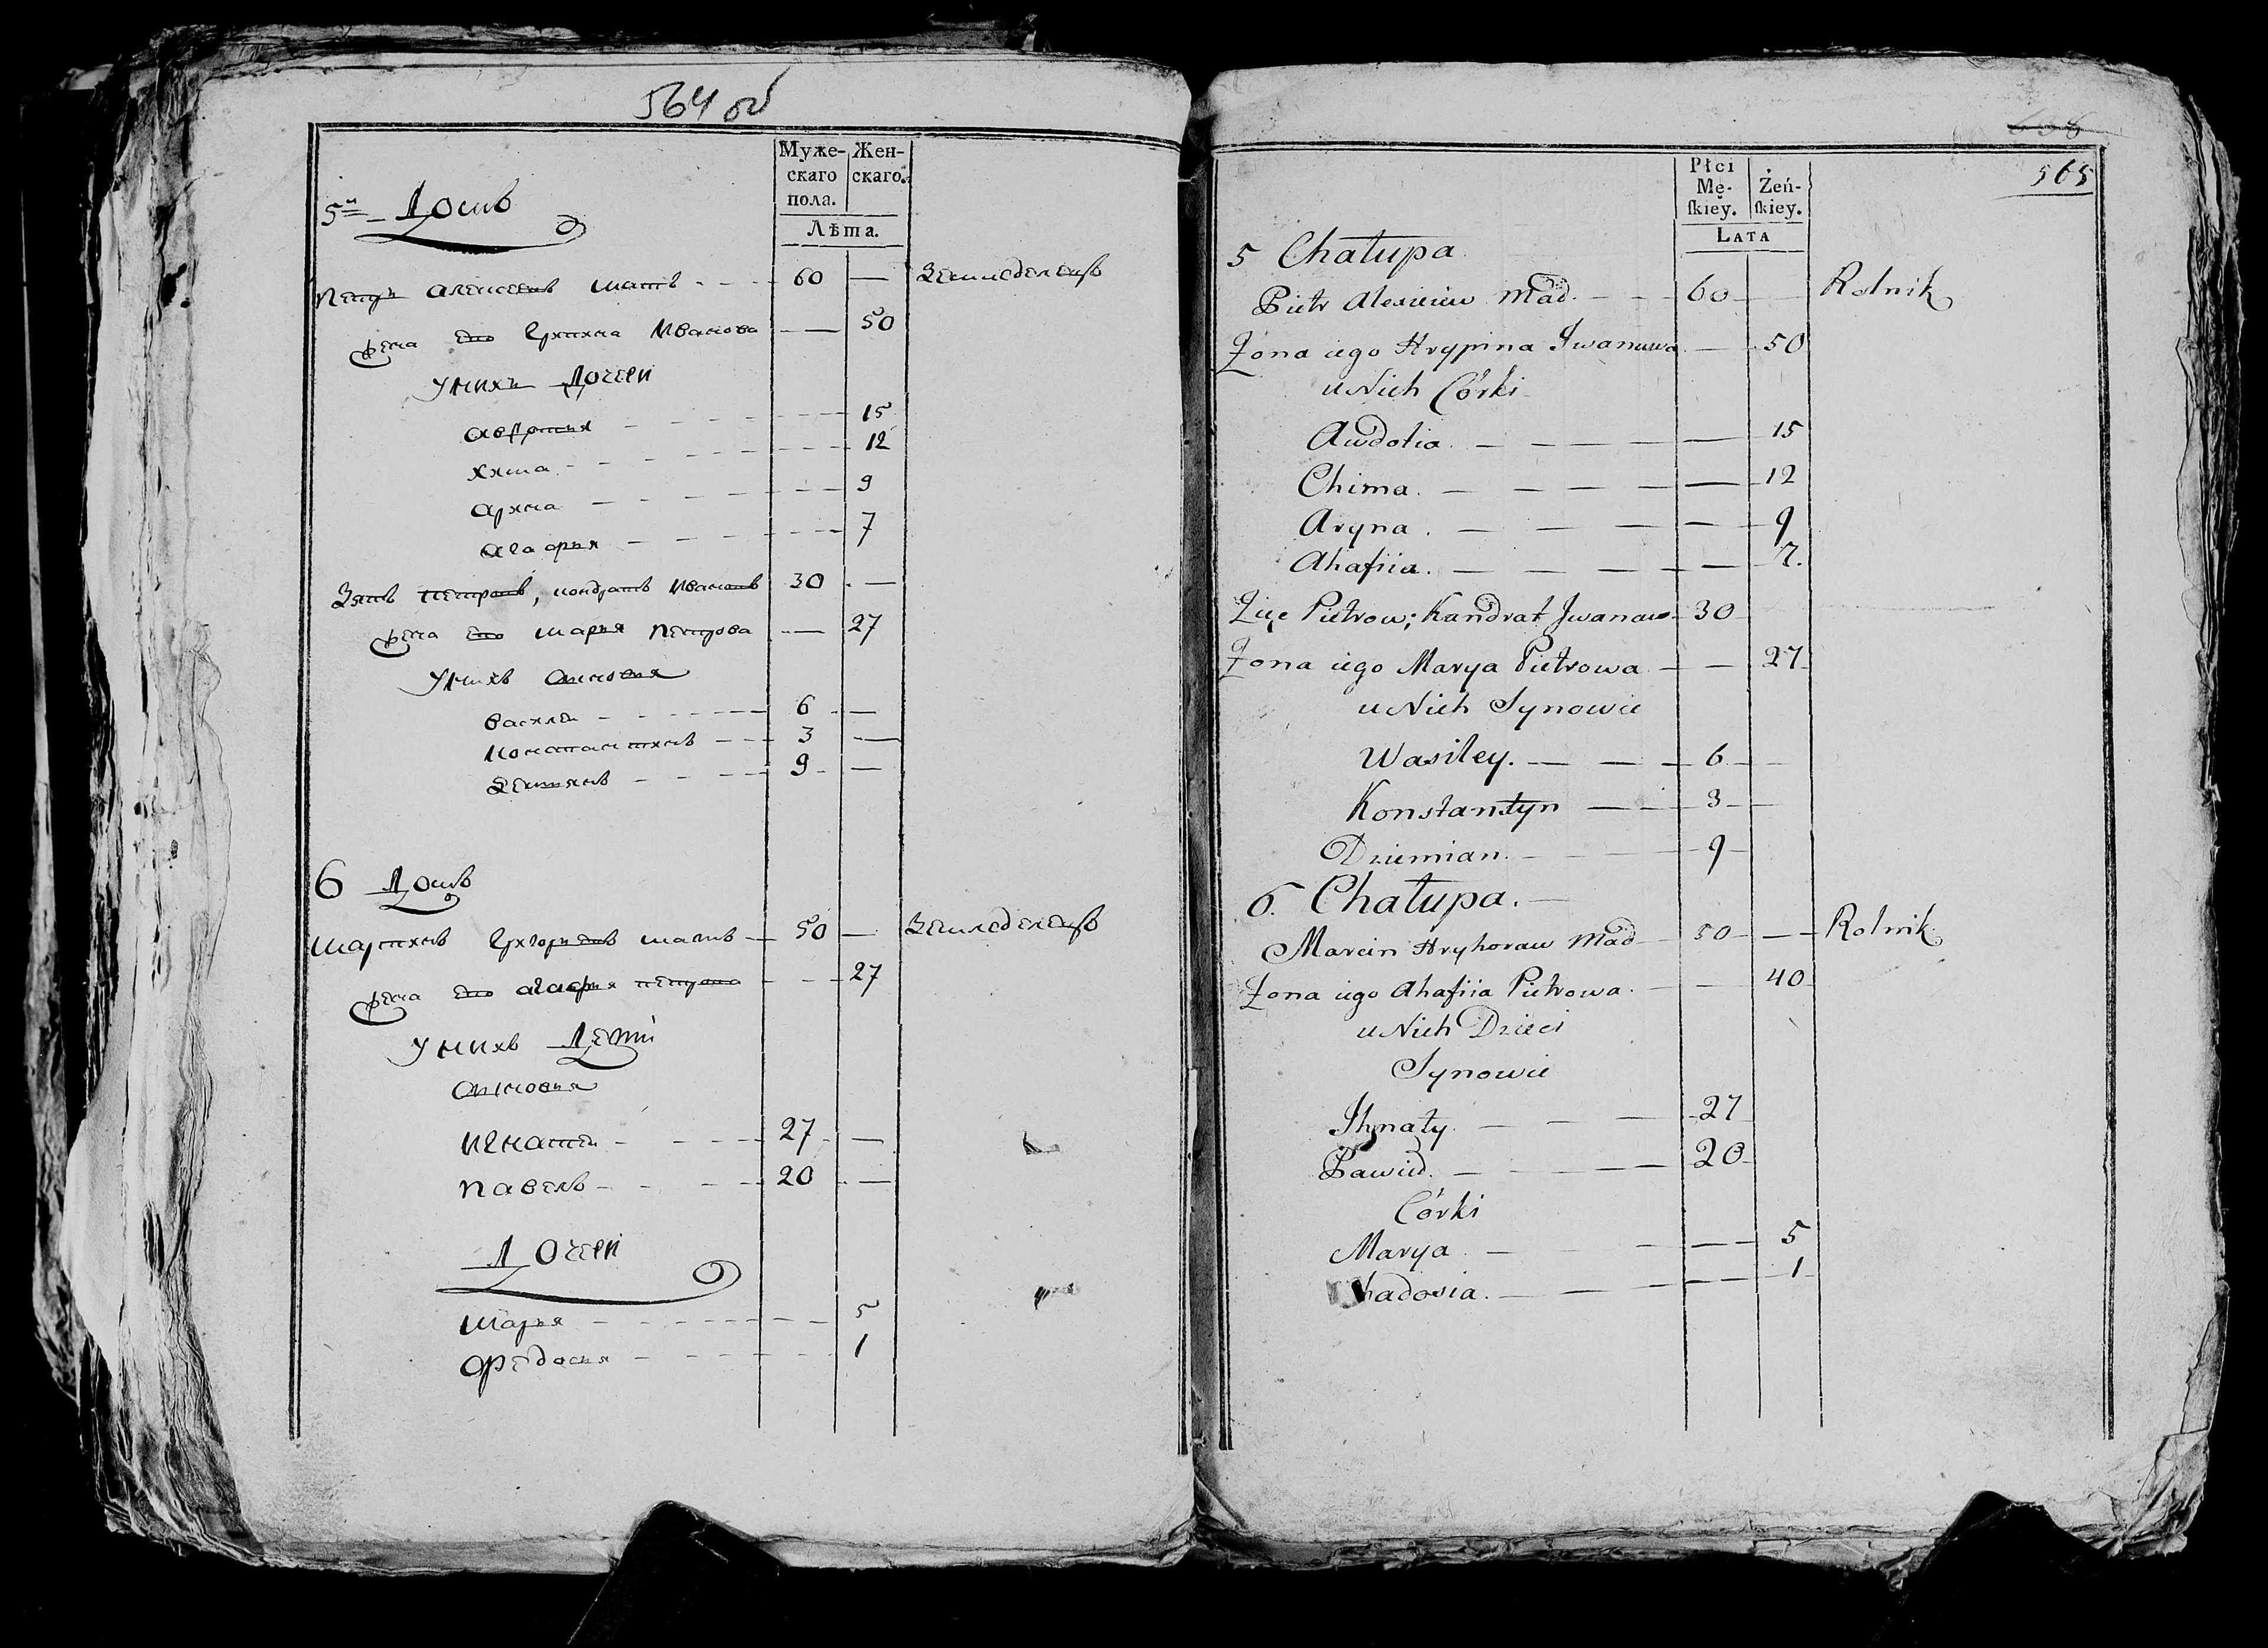 564 об
Муже-
скаго
пола.
Жен-
скаго.
Лѣта.
5й Домъ
Петръ Алексеевъ Матъ 60 — Земледелецъ
Жена его Грипина Иванова — 50
У нихъ Дочери
Авдотья — 15
Хима — 12
Арина — 9
Агафья — 7
Зять Петровъ, Кондратъ Ивановъ 30 —
Жена его Марья Петрова — 27
У нихъ Сыновья
Василей — 6 —
Константинъ — 3 —
Демьянъ — 9 —
6 Домъ
Мартинъ Григорьевъ Матъ — 50 — Земледелецъ
Жена его Агафья Петрова — 27
У нихъ Дети
Сыновья
Игнатей — 27 —
Павелъ — 20 —
Дочери
Марья — 5
Федосья — 1
565
Płci
Mę-
ſkiey.
Żeń-
ſkiey.
Lata
5 Chałupa
Pietr Alexieiew Mad. — 60 — Rolnik
Żona iego Hrypina Iwanuwa — 50
u Nich Córki
Awdotia. — 15
Chima. — 12
Aryna. — 9
Ahafiia. — 7.
Zięć Pietrow; Kandrat Iwanaw 30
Żona iego Marya Pietrowa — 27
u Nich Synowie
Wasiley. — 6 —
Konstantyn — 3 —
Dziemian. — 9 —
6. Chałupa. —
Marcin Hryhoraw Mad — 50 — Rolnik
Żona iego Ahafiia Pietrowa. — 40
u Nich Dzieci
Synowie
Ihnaty — 27
Paweł. — 20
Córki
Marya — 5
Chadosia. — 1